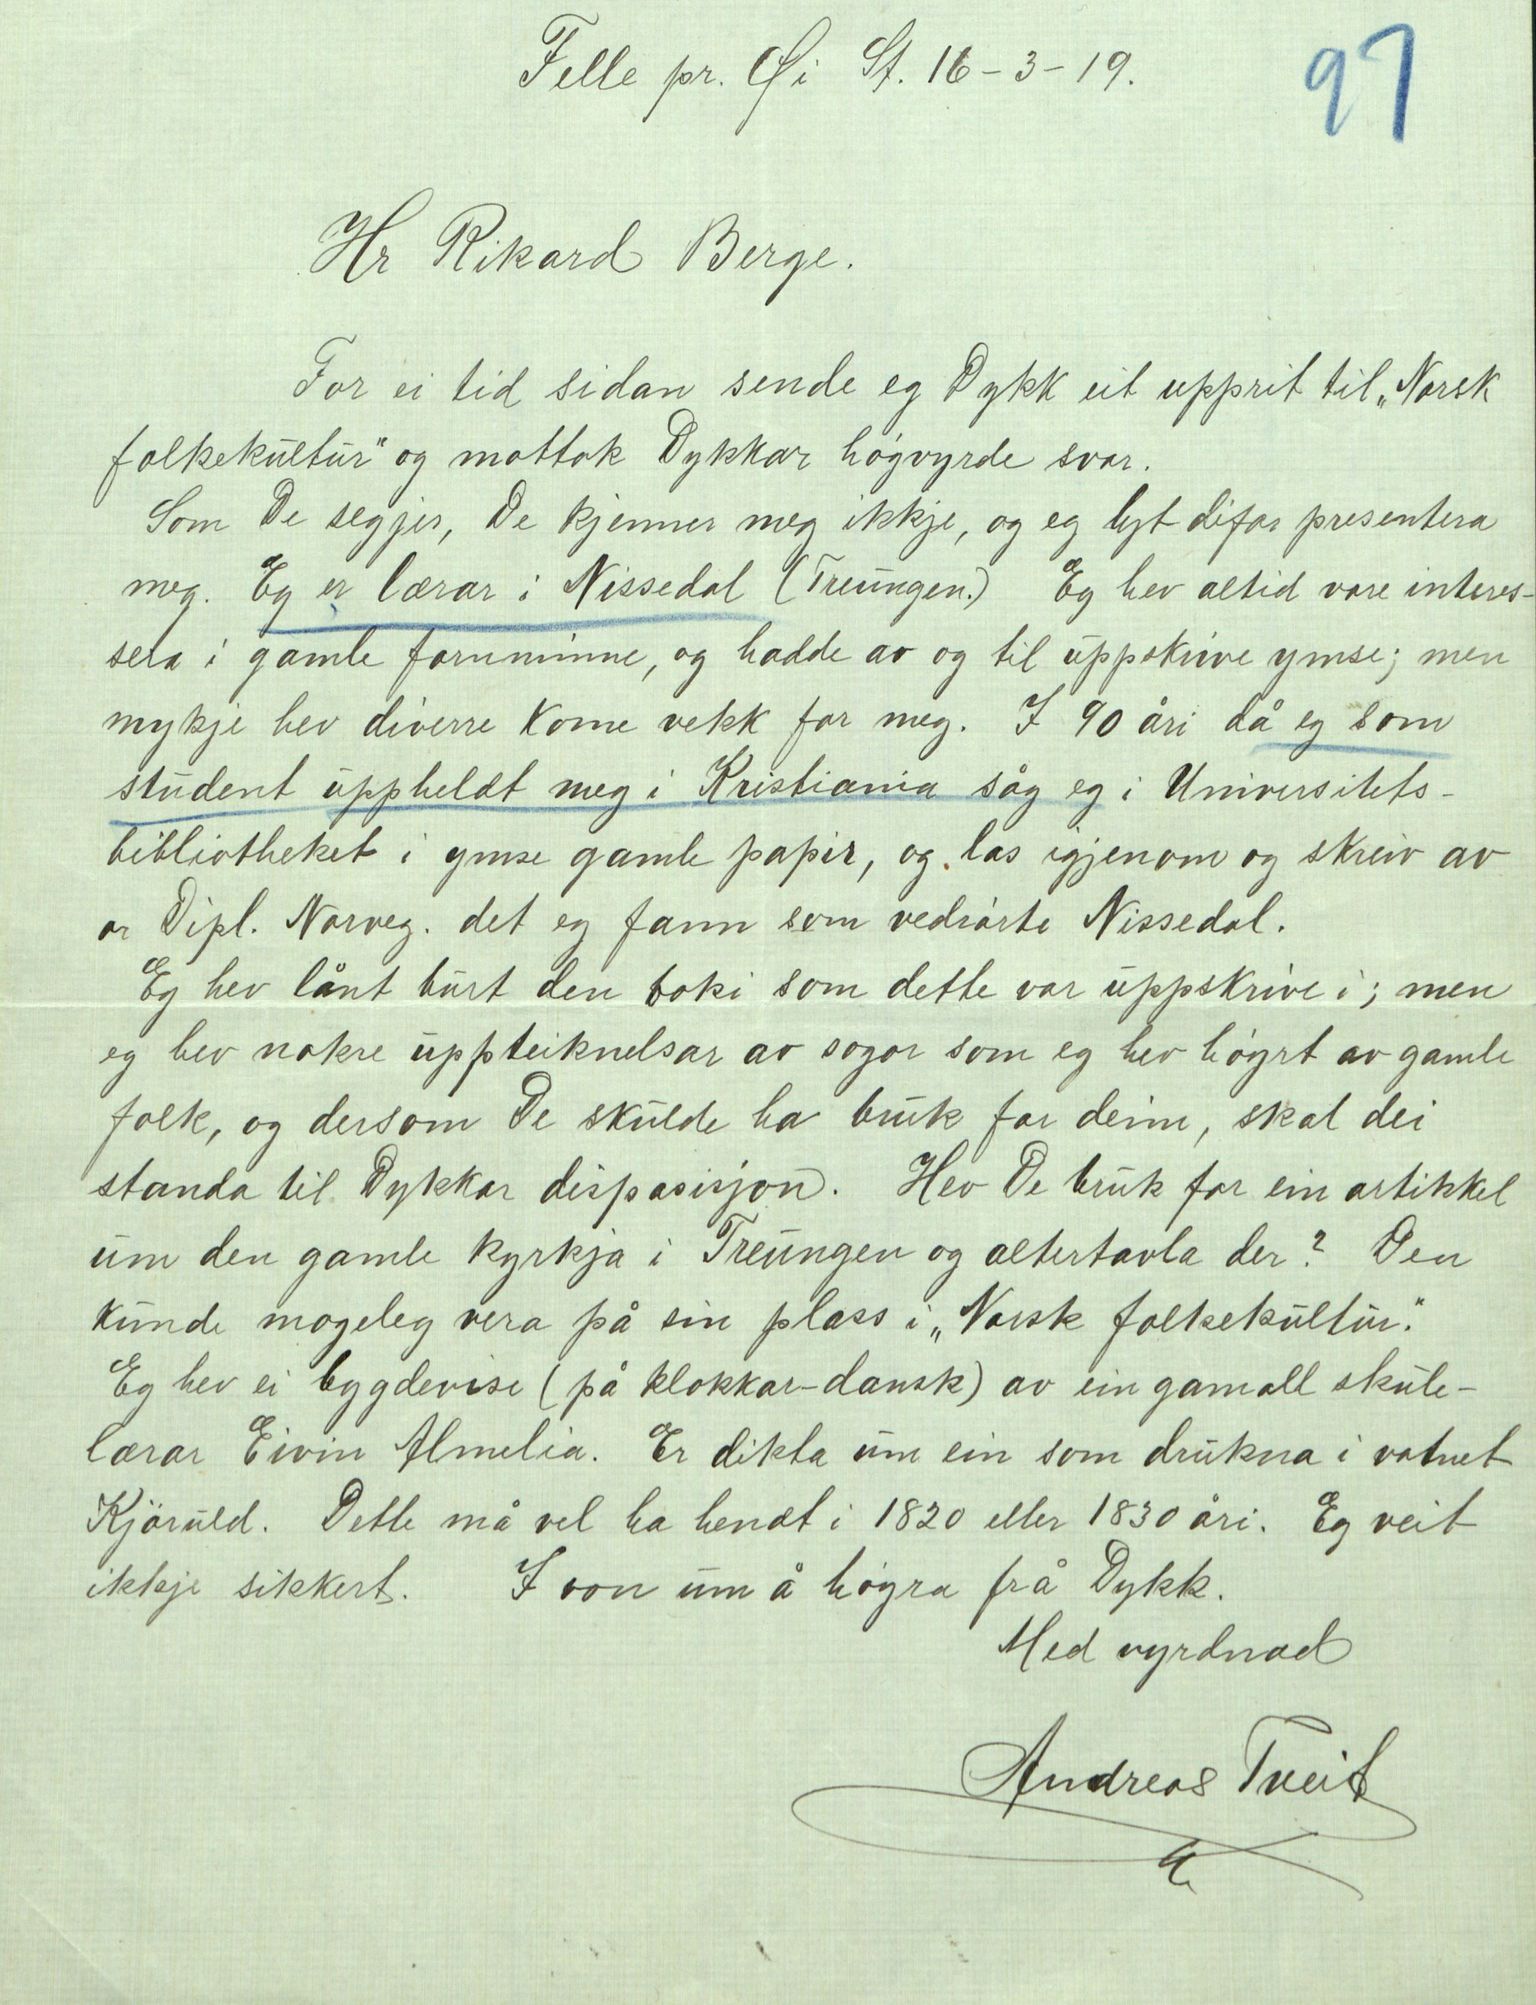 Felle pr. Øi St. 16-3-19.
97
Hr Rikard Berge.
For ei tid sidan sende eg Dykk eit upprit til „Norsk
folkekultur" og mottok Dykkar högvyrde svar.
Som De segjer, De kjenner meg ikkje, og eg lyt difor presentera
meg. Eg er lærar i Nissedal (Treungen.) Eg hev altid vore interes-
sera i gamle fornminne, og hadde av og til uppskrive ymse; men
mykje hev diverre kome vekk for meg. I 90 åri då eg som
student uppheldt meg i Kristiania såg eg i Universitets-
bibliotheket i ymse gamle papir, og las igjenom og skreiv av
or Dipl. Norveg. det eg fann som vedrörte Nissedal.
Eg hev lånt burt den boki som dette var uppskrive i; men
eg hev nokre uppteiknelsar av sogor som eg hev höyrt av gamle
folk, og dersom De skulde ha bruk for deim, skal dei
standa til Dykkar disposisjon. Hev De bruk for ein artikkel
um den gamle kyrkja i Treungen og altertavla der? Den
kunde mogeleg vera på sin plass i „Norsk folkekultur."
Eg hev ei bygdevise (på klokkar-dansk) av ein gamall skule-
lærar Eivin Almelia. Er dikta um ein som drukna i vatnet
Kjöruld. Dette må vel ha hendt i 1820 eller 1830 åri. Eg veit
ikkje sikkert. I von um å höyra frå Dykk.
Med vyrdnad
Andreas Tveit